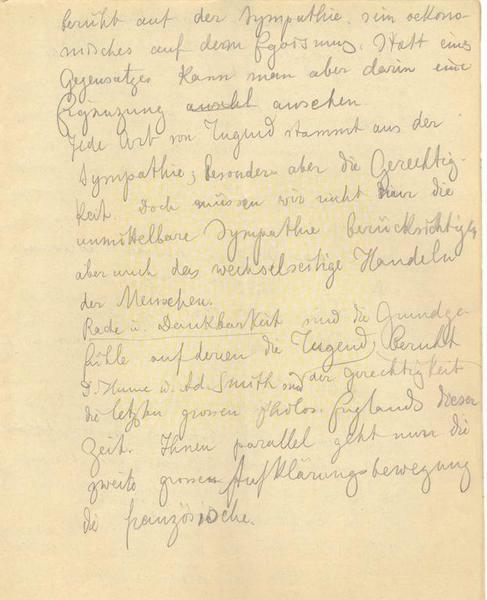 beruht auf der Sympathie, sein oekono-
misches auf dem Egoismus. Statt eines
Gegensatzes kann man aber darin eine
Ergänzung ansehen.
Jede Art von Tugend stammt aus der
Sympathie, besonders aber die Gerechtig-
keit. Doch müssen wir nicht nur die
unmittelbare Sympathie berücksichtigen
aber auch das wechselseitige Handeln
der Menschen.
Rache u. Dankbarkeit sind die Grundge-
fühle auf deren die Tugend beruht
der Gerechtigkeit
D. Hume u. Ad. Smith sind
die letzten grossen Philos. Englands dieser
Zeit. Ihnen parallel geht nun die
zweite grosse Aufklärungsbewegung
die französische.